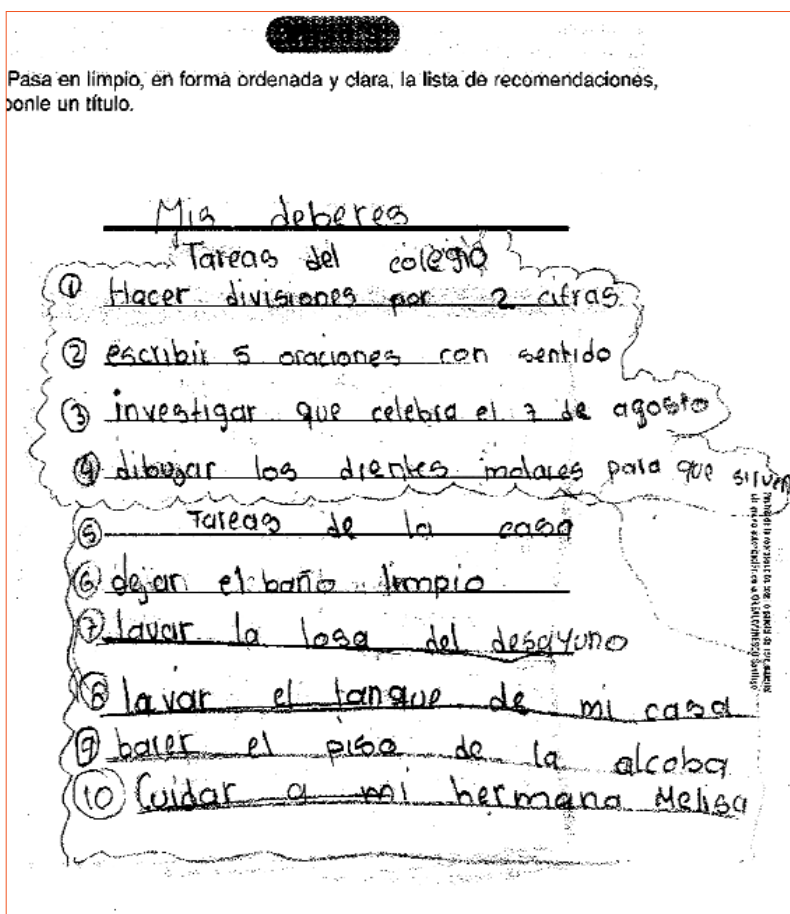 Pasa en limpio, en forma ordenada y clara, la lista de recomendaciones,
ponle un título.
Mis deberes
Tareas del colegio
① Hacer divisiones por 2 cifras
② escribir 5 oraciones con sentido
③ investigar que celebra el 7 de agosto
④ dibujar los dientes molares para que sirven
⑤ Tareas de la casa
⑥ dejan el baño limpio
⑦ lavar la losa del desayuno
⑧ lavar el tanque de mi casa
⑨ barer el piso de la alcoba
⑩ Cuidar a mi hermana Melisa